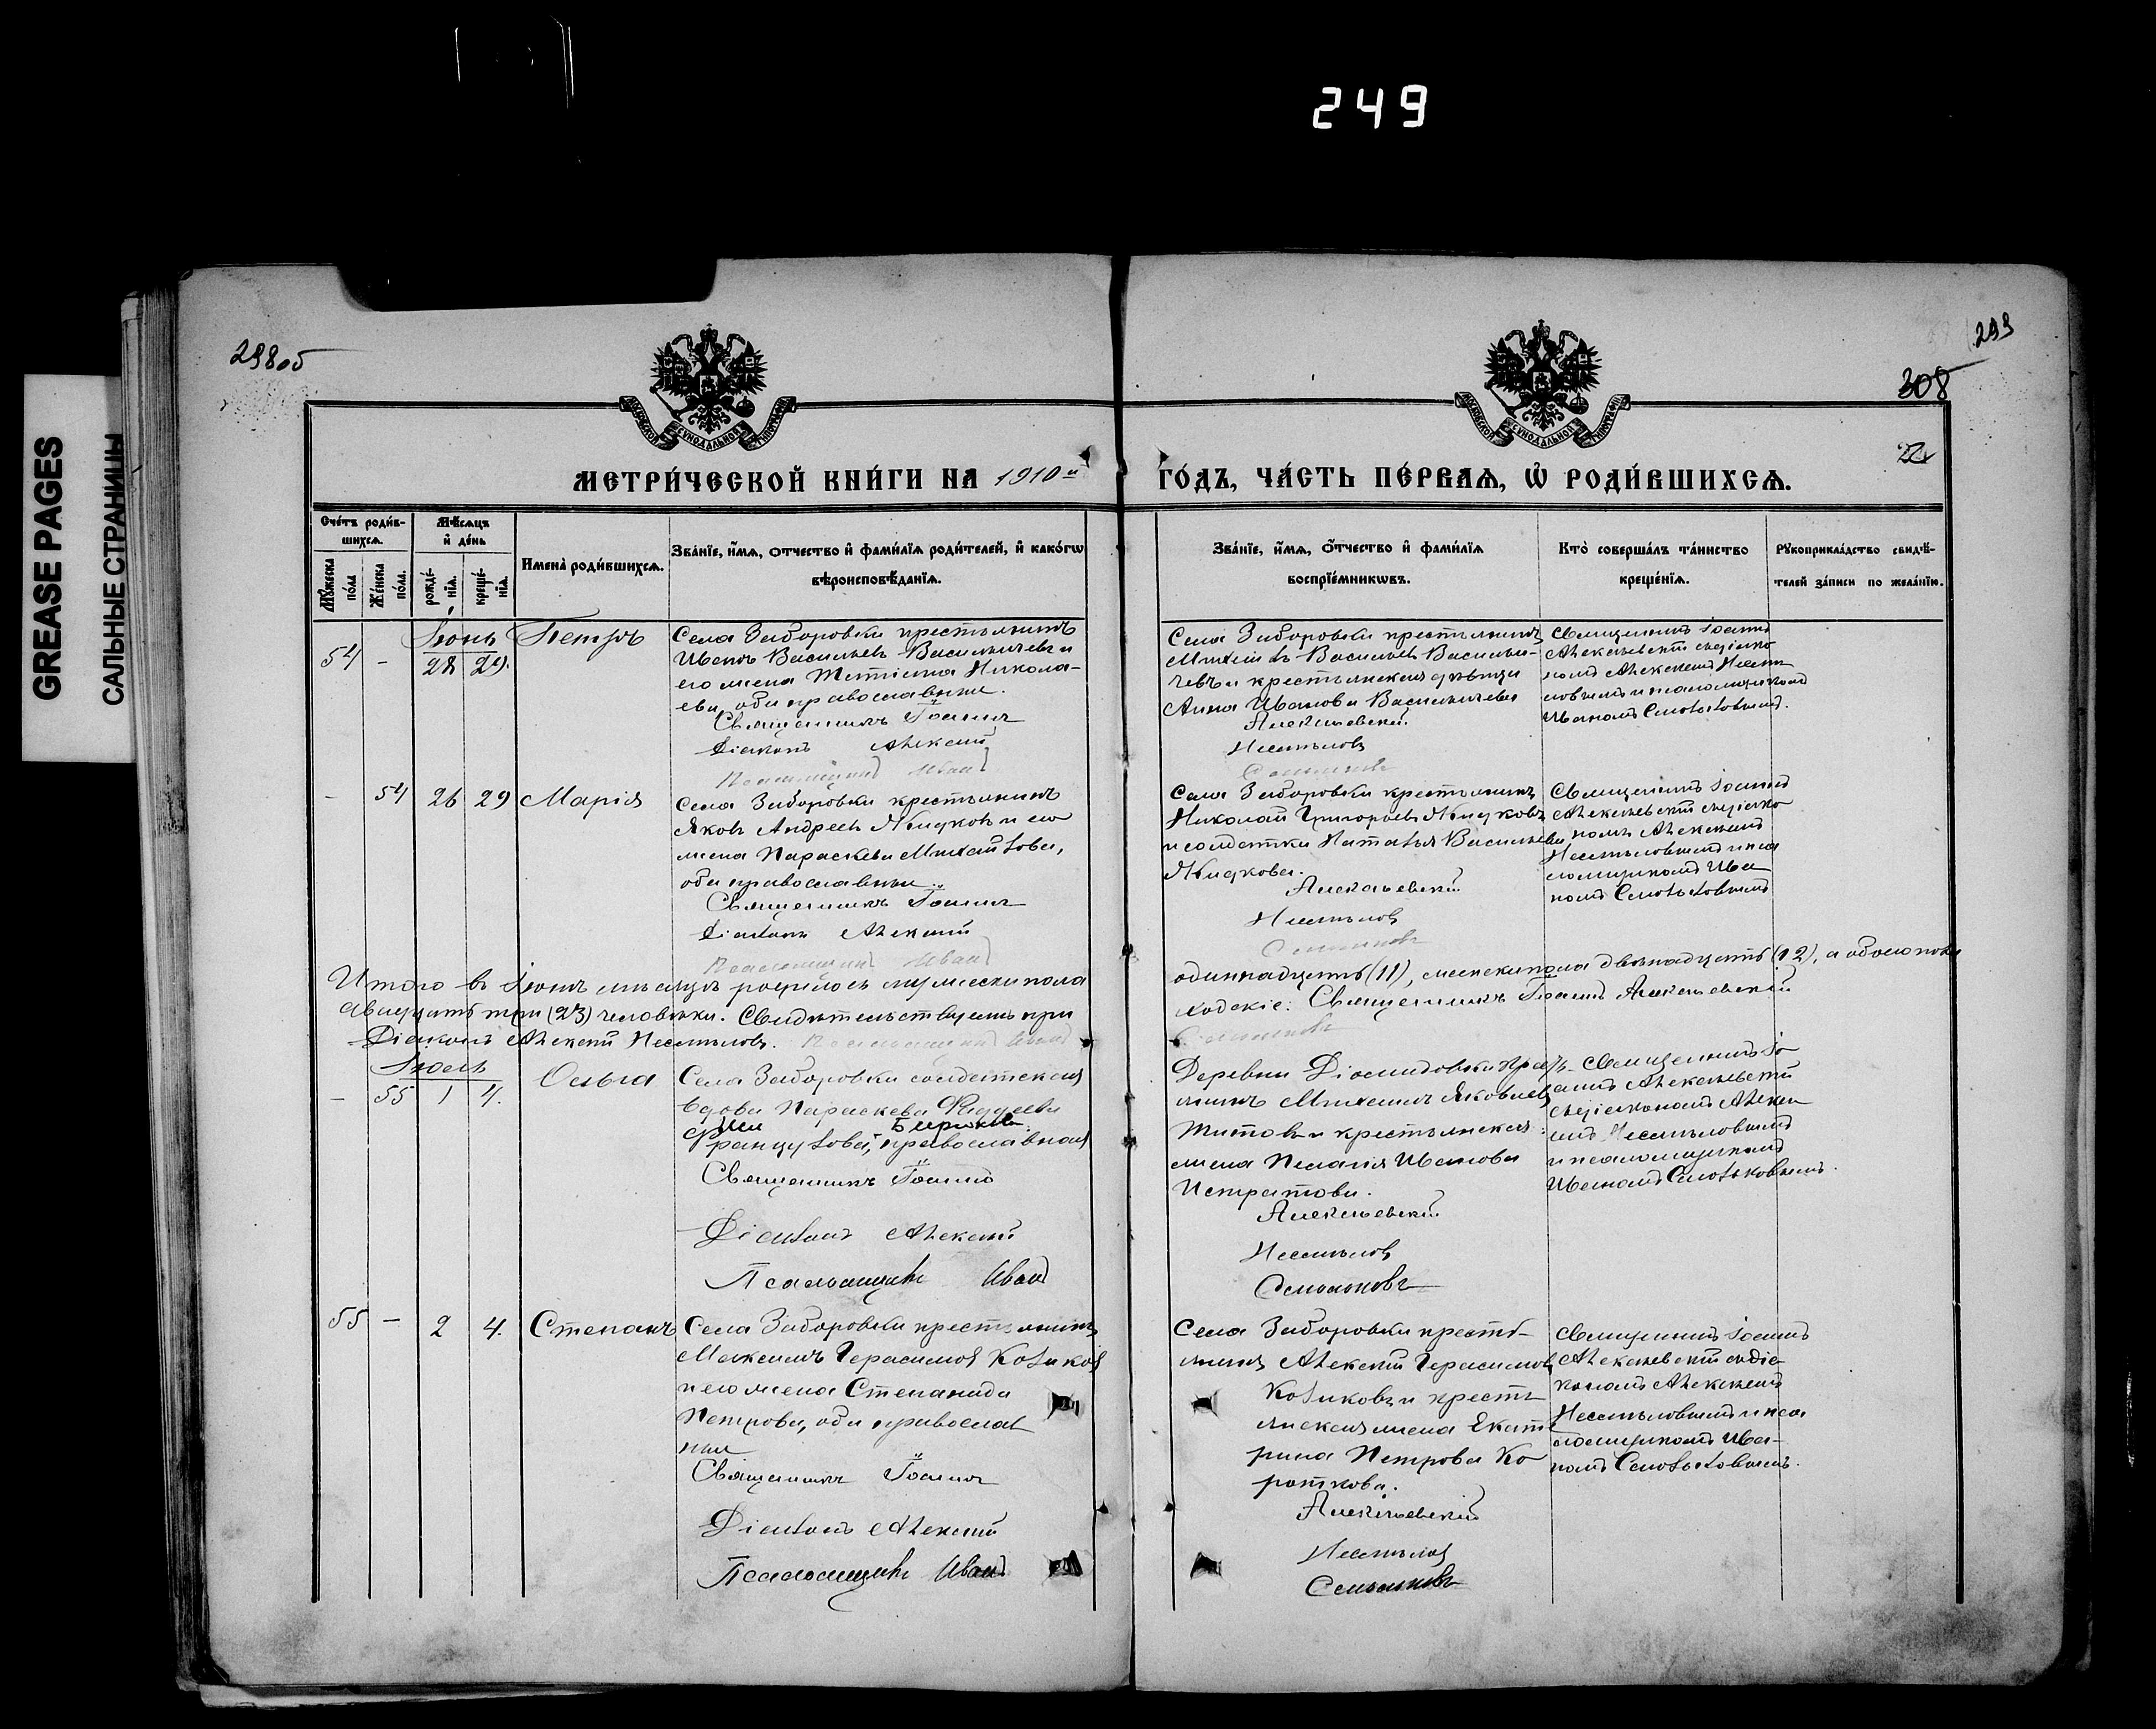 249
GREASE PAGES
САЛЬНЫЕ СТРАНИЦЫ
298об
299
308
МЕТРИ́ЧЕСКОЙ КНИ́ГИ НА 1910й
ГО́ДЪ, ЧА́СТЬ ПЕ́РВАѦ, Ѡ҆ РОДИ́ВШИХСѦ.
Сче́тъ роди́в-
шихсѧ.
Мꙋ́жеска по́ла
Же́нска по́ла.
Мѣ́сѧцъ
и҆ де́нь
рожде́-
нїѧ.
креще́-
нїѧ.
Имена̀ роди́вшихсѧ.
Зва́нїе, и҆́мѧ, ѻ҆́тчество и҆ фами́лїѧ роди́телей, и҆ како́гѡ
вѣроисповѣ́данїѧ.
Зва́нїе, и҆́мѧ, ѻ҆́тчество и҆ фами́лїѧ
воспрїе́мникѡвъ.
Кто̀ соверша́лъ та́инство
креще́нїѧ.
Рꙋкоприкла́дство свидѣ́-
телей за́писи по жела́нїю.
Іюнь
54 - 28 29.
Петръ
Села Заборовки крестьянинъ
Иванъ Васильевъ Васильичевъ и
его жена Татіана Никола-
ева, оба православные.
Священникъ Іоаннъ
Діаконъ Алексій
Псаломщикъ Иванъ
Села Заборовки крестьянинъ
Михаилъ Васильевъ Василь-
чевъ и крестьянская дѣвица
Анна Иванова Васильичева
Алекаевскій
Несмѣловъ
Священникъ Іоаннъ
номъ Алексіемъ Несмѣ-
ловымъ и псаломщикомъ
Иваномъ
- 54 26 29
Марія
Села Заборовки крестьянинъ
Яковъ Андреевъ Жидковъ и его
жена Параскева Михайлова,
оба православные.
Священникъ Іоаннъ
Діаконъ Алексій
Псаломщикъ Иванъ
Села Заборовки крестьянинъ
Николай Григорьевъ Жидковъ
и солдатка Наталья Васильева
Жидкова.
Несмѣловъ
Священникъ Іоаннъ
номъ Алексіемъ
Несмѣловымъ и пса
ломщикомъ Ива
номъ
Итого въ Іюнѣ мѣсяцѣ родилось мужеска пола
одиннадцать (11), женска пола двѣнадцать (12), а обоего пола
двадцать три (23) человѣка. Свидѣтельствуемъ при
ходскіе: Священникъ Іоаннъ
Діаконъ Алексій Несмѣловъ. Псаломщикъ Иванъ
Іюль
- 55 1 4.
Ольга
Села Заборовки солдатская
вдова Параскева Фаддеева
Французова, православная
Священникъ Іоаннъ
Діаконъ Алексій
Псаломщикъ Иванъ
Деревни Діомидовки крестья-
нинъ Михаилъ Яковлевъ
Титовъ и крестьянская
жена Пелагія Иванова
Патратова.
Несмѣловъ
Священникъ Іо
аннъ
съ діакономъ Алексі
емъ Несмѣловымъ
и псаломщикомъ
Иваномъ
55 - 2 4.
Степанъ
Села Заборовки крестьянинъ
Максимъ Герасимовъ Котиковъ
и его жена Степанида
Петрова, оба православ
ные
Священникъ Іоаннъ
Діаконъ Алексій
Псаломщикъ Иванъ
Села Заборовки кресть-
янинъ Алексій Герасимовъ
Котиковъ и кресть
янская жена Екате
рина Петрова Ко
роткова.
Несмѣловъ
Священникъ Іоаннъ
съ діа-
кономъ Алексіемъ
Несмѣловымъ и пса
ломщикомъ Ива-
номъ